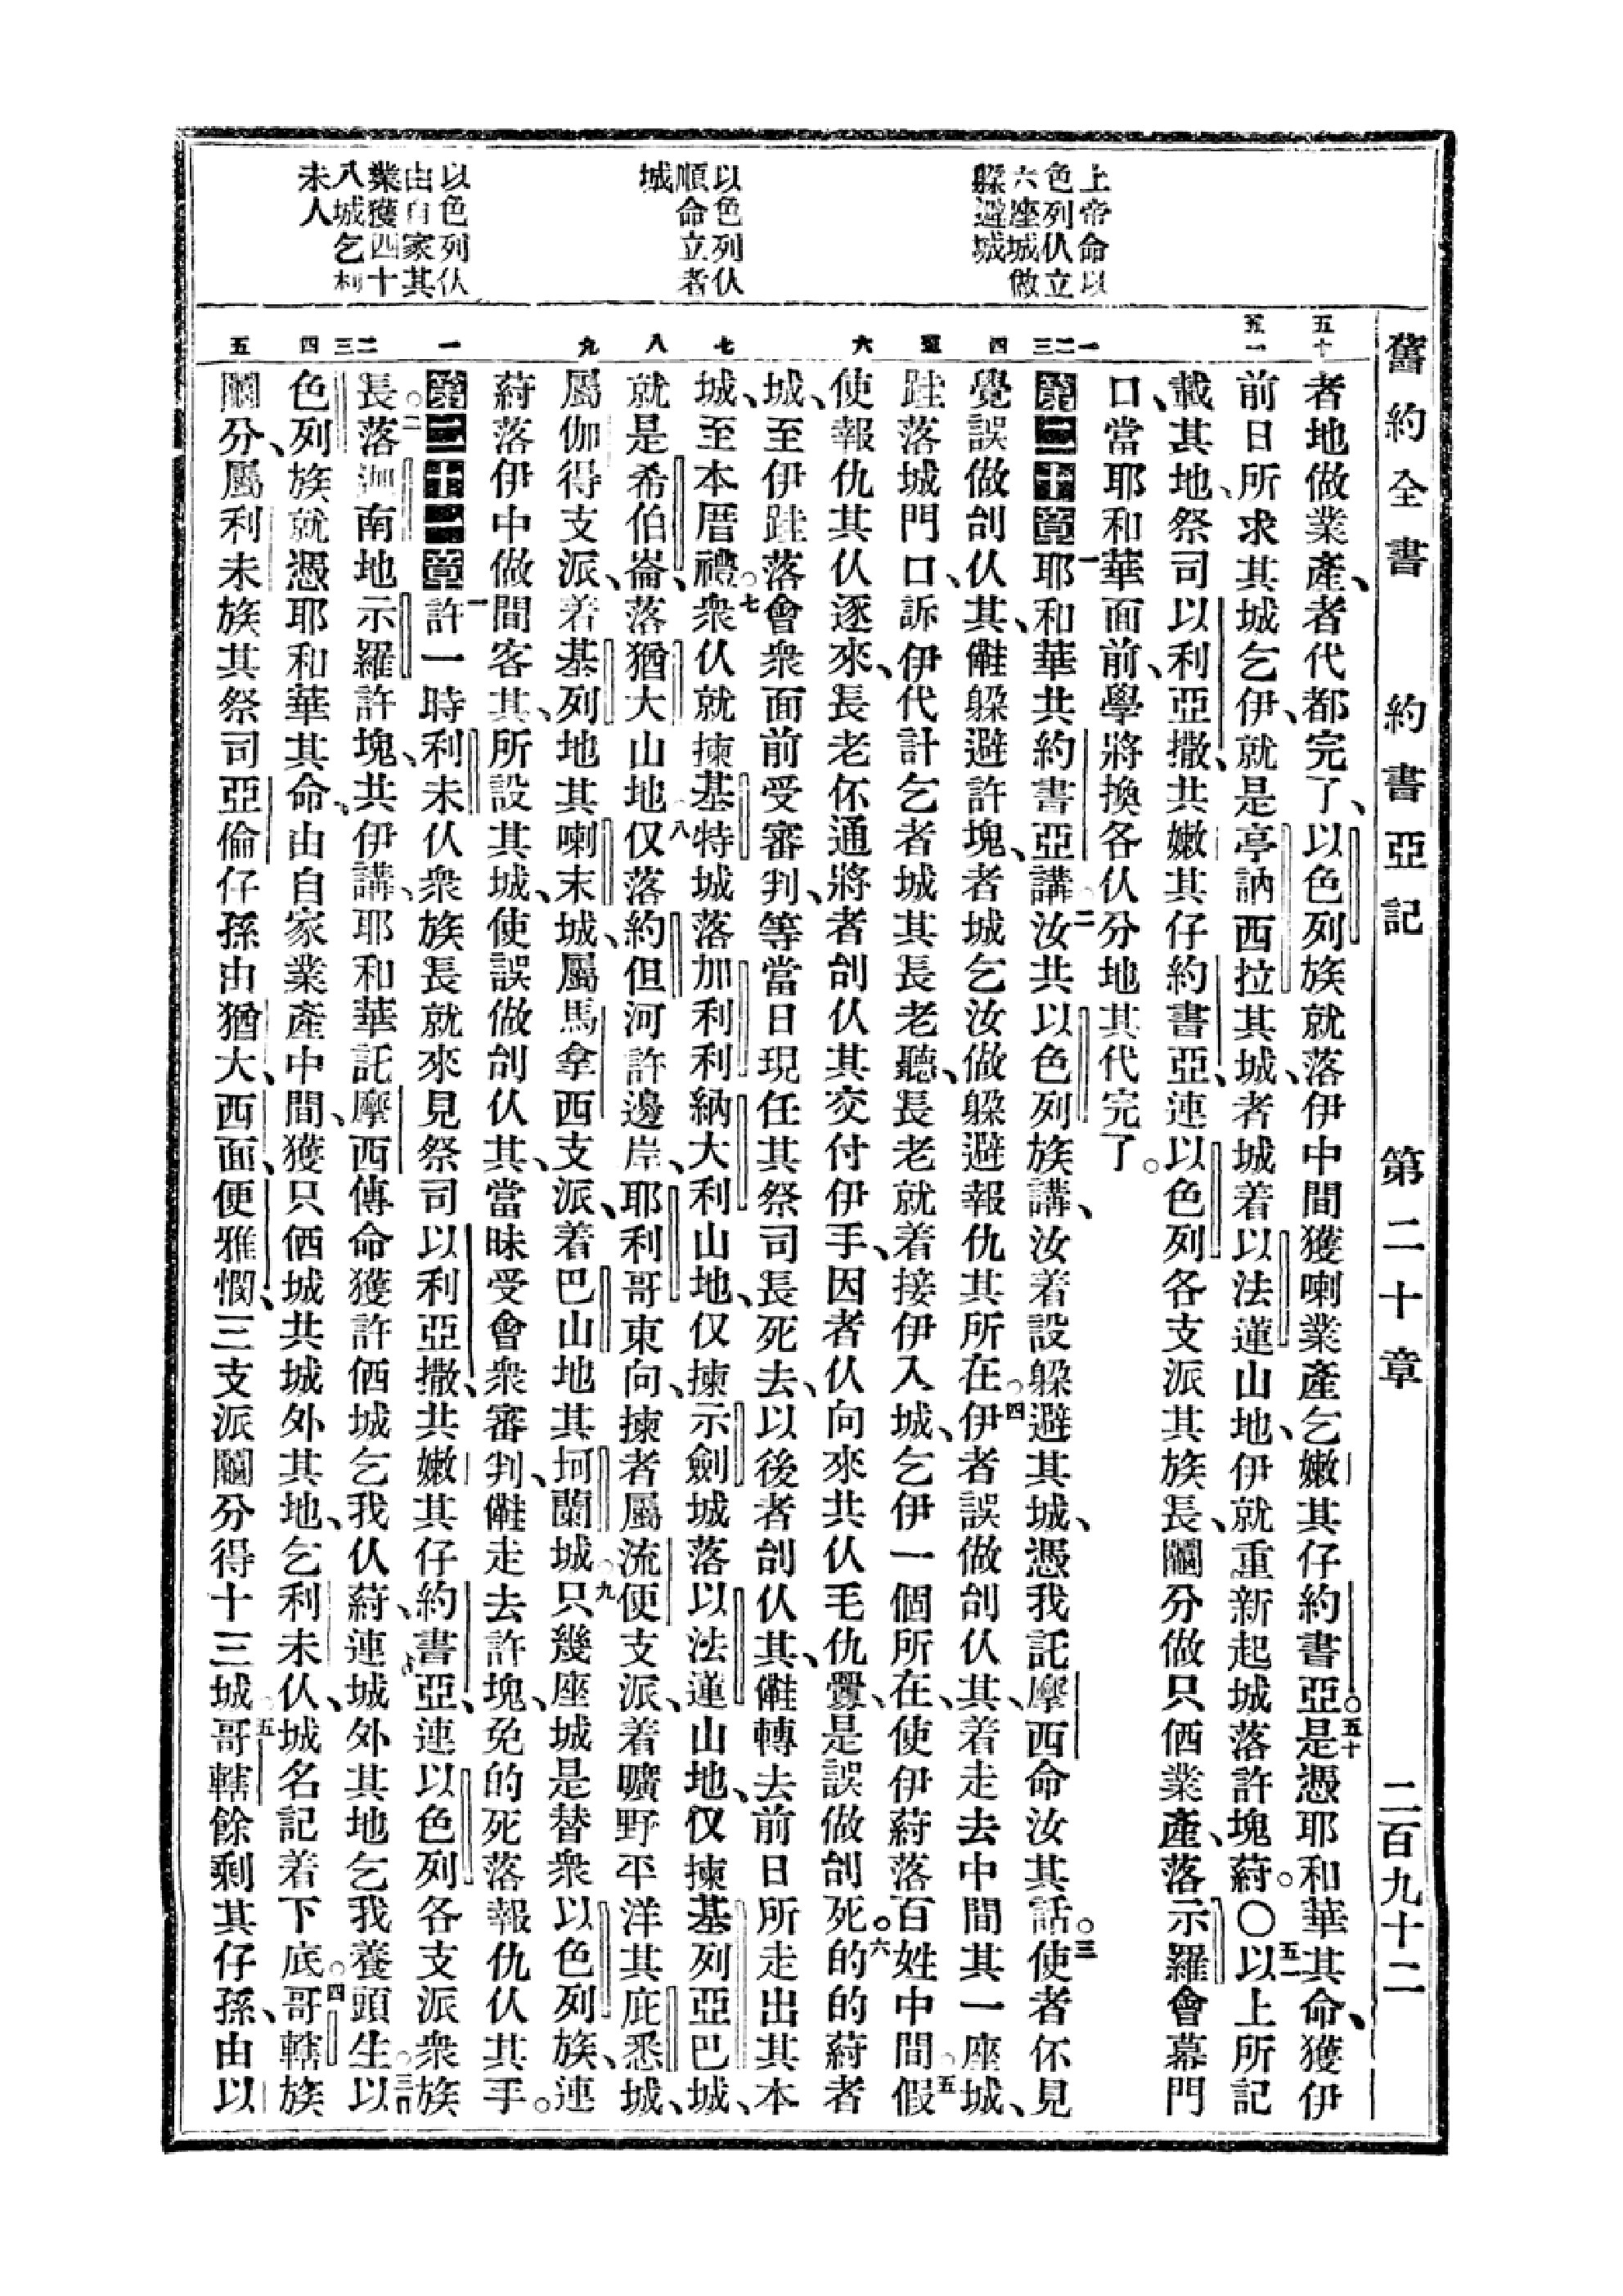 舊約全書 約書亞記 第二十章 二百九十二
上帝命以
色列仫立
六座城做
躱避城
以色列仫
順命立者
城
以色列仫
由自家其
業獲四十
八城乞利
未人
五十
五一
一
二
三
四
五
六
七
八
九
一
二
三
四
五
者地做業產、者代都完了、以色列族就落伊中間獲喇業產乞嫩其仔約書亞。五十是憑耶和華其命、獲伊
前日所求其城乞伊、就是亭訥西拉其城、者城着以法蓮山地、伊就重新起城落許塊䓁。〇五一以上所記
載其地、祭司以利亞撒、共嫩其仔約書亞、連以色列各支派其族長、鬮分做只俩業產、落示羅會幕門
口、當耶和華面前、學將換各仫分地其代完了。
第二十章一耶和華共約書亞講、二汝共以色列族講、汝着設躱避其城、憑我託摩西命汝其話。三使者伓見
覺誤做刣仫其、㑚躱避許塊、者城乞汝做躱避報仇其所在。四伊者誤做刣仫其、着走去中間其一座城、
跬落城門口、訴伊代計乞者城其長老聽、長老就着接伊入城、乞伊一個所在、使伊䓁落百姓中間。五假
使報仇其仫逐來、長老伓通將者刣仫其交付伊手、因者仫向來共仫毛仇釁、是誤做刣死。六的的䓁者
城、至伊跬落會衆面前受審判、等當日現任其祭司長死去、以後者刣仫其、㑚轉去前日所走出其本
城、至本厝禮。七衆仫就揀基特城落加利利納大利山地、仅揀示劍城落以法蓮山地、仅揀基列亞巴城、
就是希伯崙、落猶大山地。八仅落約但河許邊岸、耶利哥東向、揀者屬流便支派、着曠野平洋其庇悉城、
屬伽得支派、着基列地其喇末城、屬馬拿西支派、着巴山地其坷蘭城。九只幾座城是替衆以色列族、連
䓁落伊中做間客其、所設其城、使誤做刣仫其、當昧受會衆審判、㑚走去許塊、免的死落報仇仫其手。
第二十一章一許一時利未仫衆族長就來見祭司以利亞撒、共嫩其仔約書亞、連以色列各支派衆族
長。二落迦南地示羅許塊、共伊講、耶和華託摩西傳命獲許俩城乞我仫䓁、連城外其地乞我養頭生。三以
色列族就憑耶和華其命、由自家業產中間、獲只俩城共城外其地、乞利未仫、城名記着下底。四哥轄族
鬮分、屬利未族其祭司亞倫仔孫由猶大、西面、便雅憫、三支派鬮分得十三城。五哥轄餘剩其仔孫、由以